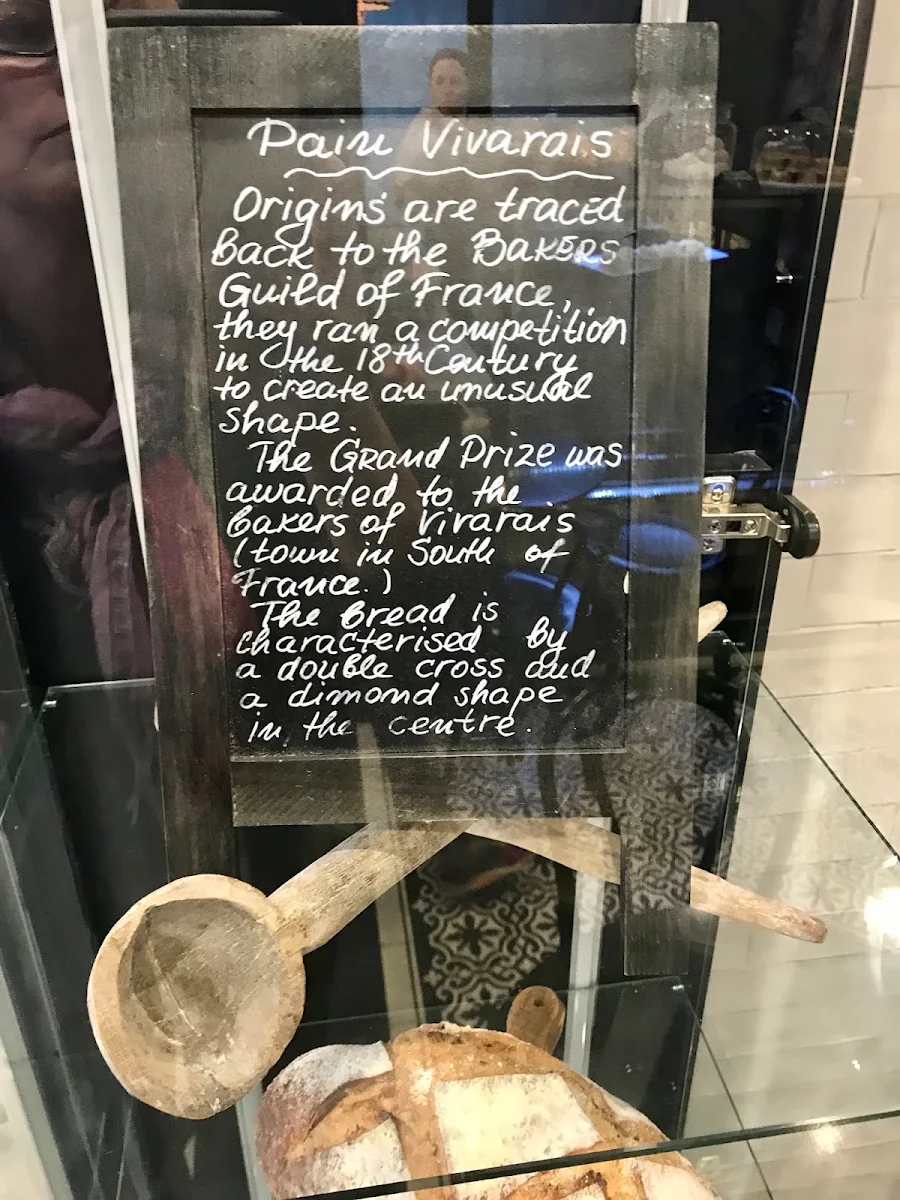 Pain Vivarais
Origins are traced
back to the BAKERS
Guild of France,
they ran a competition
in the 18th Century
to create an unusual
shape.
The Grand Prize was
awarded to the
bakers of Vivarais
(town in South of
France.)
The bread is
characterised by
a double cross and
a dimond shape
in the centre.